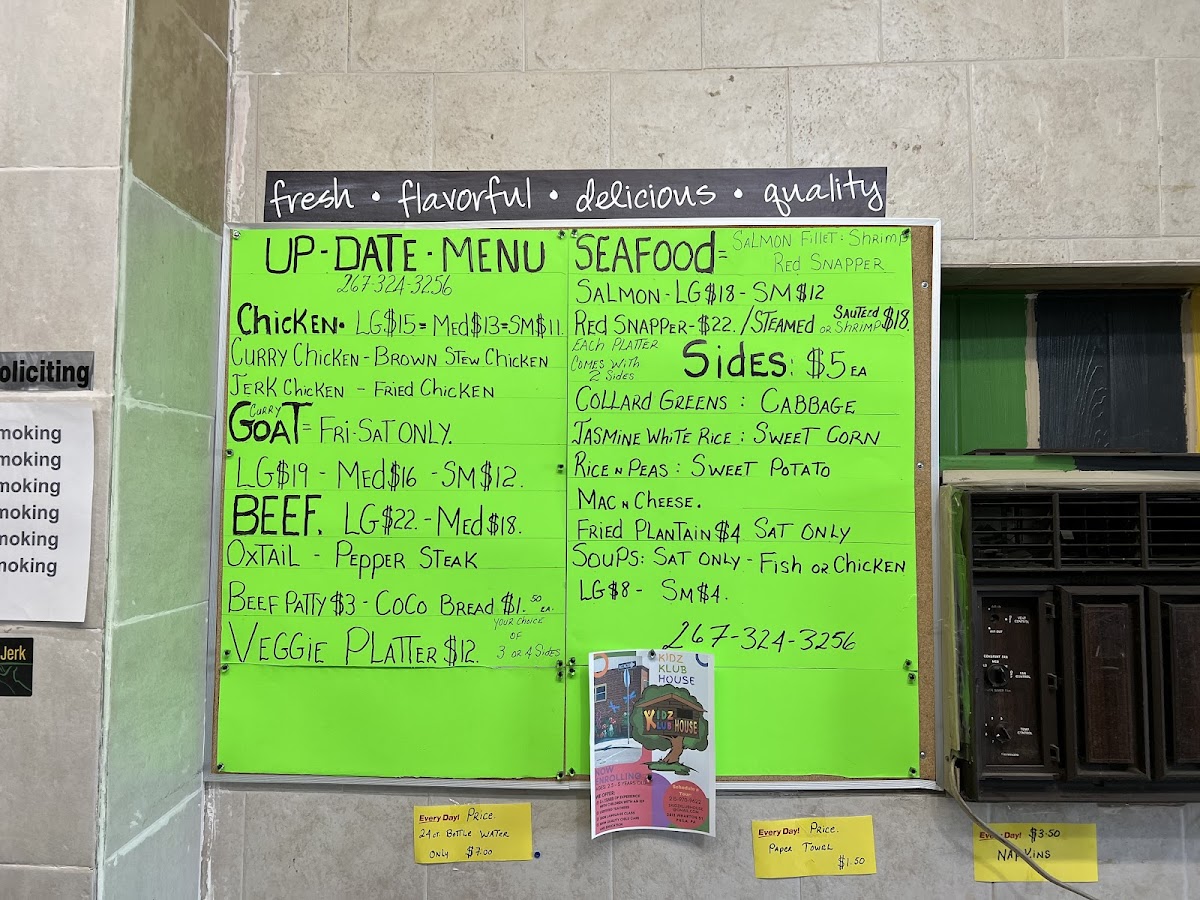 fresh • flavorful • delicious • quality
UP-DATE-MENU
267-324-3256
Chicken. LG$15= Med$13=SM$11.
Curry Chicken - Brown Stew Chicken
Jerk Chicken - Fried Chicken
Curry
GOAT= Fri-Sat ONLY.
LG$19 - Med$16 - SM$12.
BEEF. LG$22.- Med$18.
Oxtail - Pepper Steak
Beef Patty $3 - CoCo Bread $1.50 ea.
Your Choice
of
3 or 4 Sides
Veggie Platter $12.
SEAFOOD= Salmon Fillet: Shrimp
Red Snapper
Salmon - LG$18 - SM$12
Red Snapper-$22./Steamed or Sauteed Shrimp $18.
Each Platter
Comes with
2 Sides
Sides: $5 EA
Collard Greens : Cabbage
Jasmine White Rice : Sweet Corn
Rice n Peas : Sweet Potato
Mac n Cheese.
Fried Plantain $4 Sat Only
Soups: Sat Only - Fish or Chicken
LG$8 - SM$4.
267-324-3256
oliciting
moking
moking
moking
moking
moking
moking
Jerk
KIDZ
KLUB
HOUSE
KIDZ
KLUB HOUSE
NOW
ENROLLING
Schedule a
Tour
Every Day! Price.
24ct Bottle Water
only $7.00
Every Day! Price.
Paper Towel
$1.50
Every Day! $3.50
Napkins